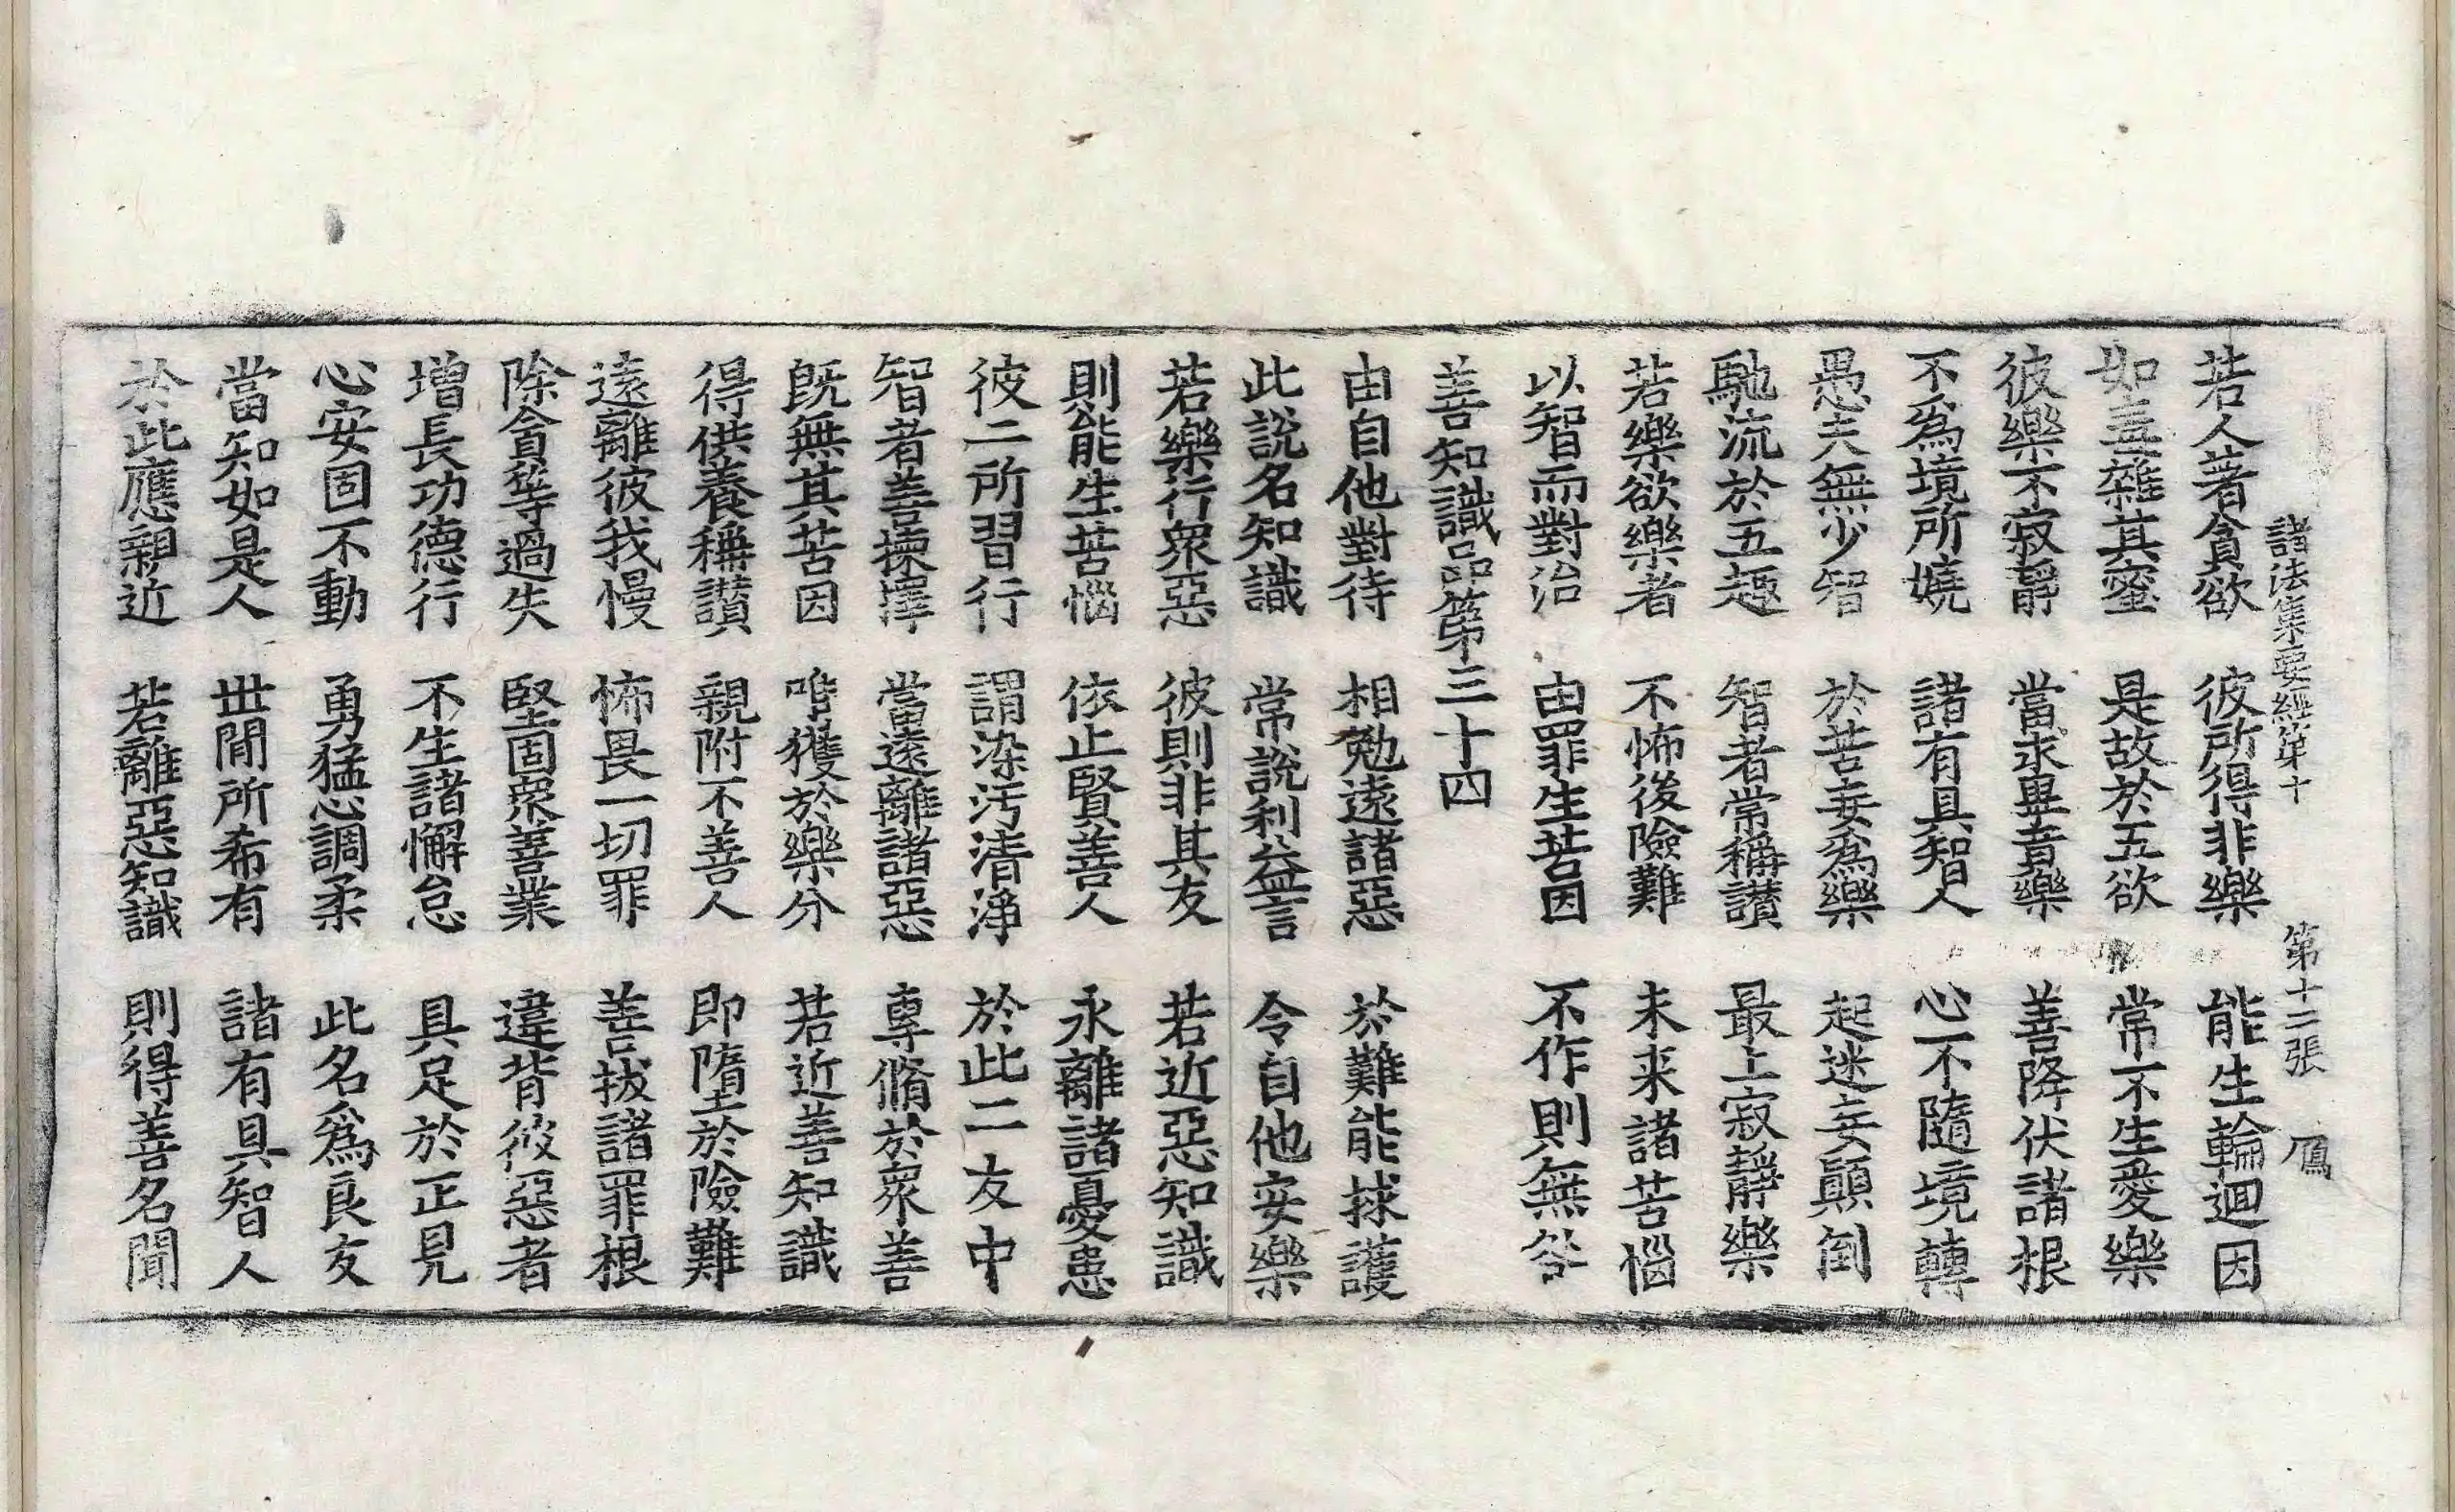 諸法集要經第十 第十二張 鴈
若人著貪欲 彼所得非樂 能生輪迴因
如毒雜其蜜 是故於五欲 常不生愛樂
彼樂不寂靜 當求畢竟樂 善降伏諸根
不爲境所嬈 諸有具智人 心不隨境轉
愚夫無少智 於苦妄爲樂 起迷妄顚倒
馳流於五趣 智者常稱讃 最上寂靜樂
若樂欲樂者 不怖後險難 未来諸苦惱
以智而對治 由罪生苦因 不作則無咎
善知識品第三十四
由自他對待 相勉遠諸惡 於難能救護
此說名知識 常說利益言 令自他安樂
若樂行衆惡 彼則非其友 若近惡知識
則能生苦惱 依止賢善人 永離諸憂患
彼二所習行 謂染汚清淨 於此二友中
智者善揀擇 當遠離諸惡 專脩於衆善
旣無其苦因 唯獲於樂分 若近善知識
得供養稱讃 親附不善人 即墮於險難
遠離彼我慢 怖畏一切罪 善拔諸罪根
除貪等過失 堅固衆善業 違背彼惡者
增長功德行 不生諸懈怠 具足於正見
心安固不動 勇猛心調柔 此名爲良友
當知如是人 世間所希有 諸有具智人
於此應親近 若離惡知識 則得善名聞